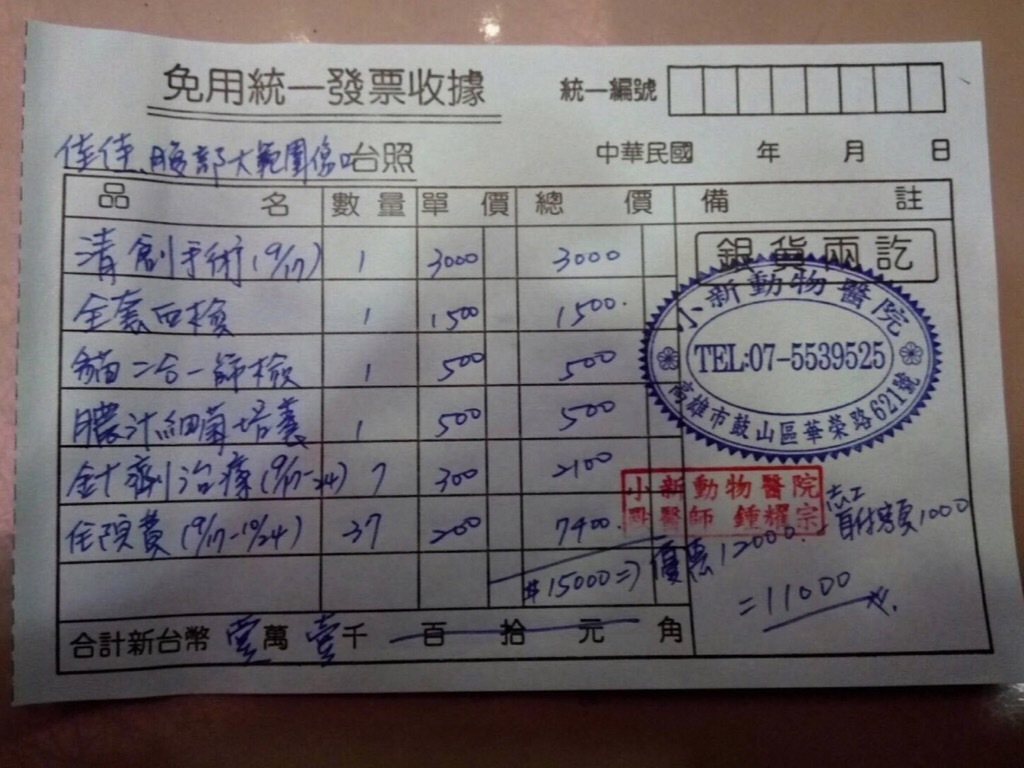 免用統一發票收據 統一編號
佳佳 腹部大範圍傷口 台照 中華民國 年 月 日
品名 數量 單價 總價 備註
清創手術(9/17) 1 3000 3000 銀貨兩訖
全套血檢 1 1500 1500
貓二合一篩檢 1 500 500
膿汁細菌培養 1 500 500
針劑治療(9/17-24) 7 300 2100
住院費(9/17-10/24) 37 200 7400
小新動物醫院
TEL:07-5539525
高雄市鼓山區華榮路621號
小新動物醫院
獸醫師 鍾耀宗
$15000=> 優惠12000. 志工自付 1000
=11000
合計新台幣 壹萬 壹千 百 拾 元 角